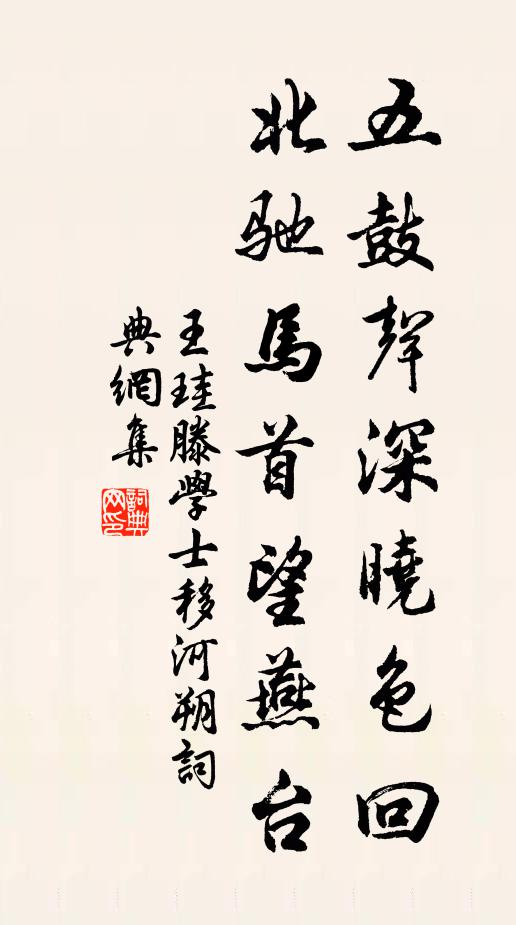 五鼓聲深曉色回
北驰馬首望燕台
王珪滕學士移河朔詞
典網集
詞典
网印